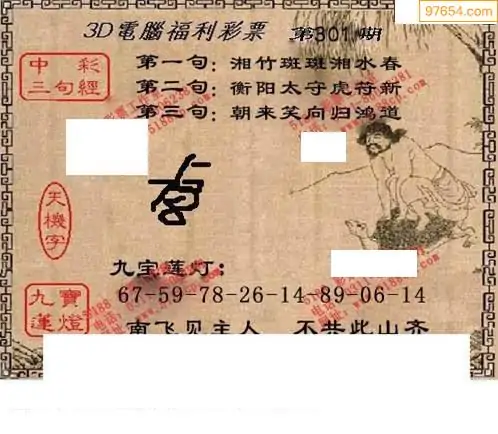 97654.com
3D電腦福利彩票 第301期
中彩三句經
第一句：湘竹斑斑湘水春
第二句：衡阳太守虎符新
第三句：朝来笑向归鸿道
天機字
九宝莲灯：
67-59-78-26-14-89-06-14
九寶蓮燈
南飞见主人 不共此山齐